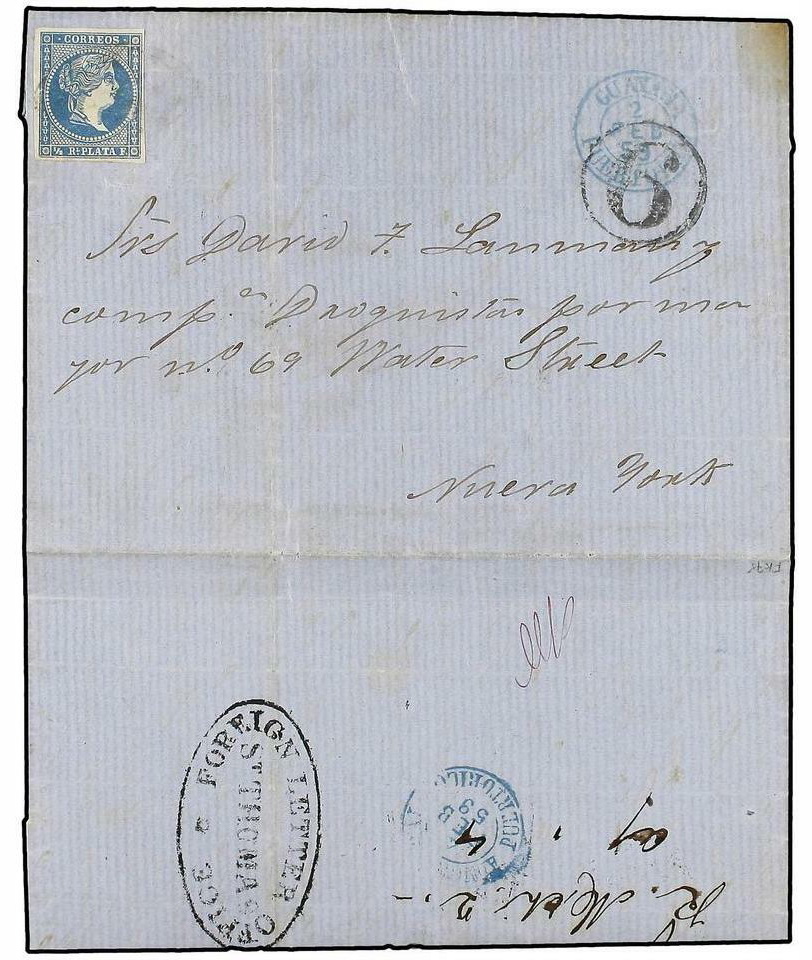 CORREOS
½ Rl. PLATA F.
2
FEB
6
Srs David F. Lanman y
comp.a Droguistas por ma
yor n.o 69 Water Street
Nueva York
FOREIGN LETTER OFFICE
ST THOMAS
PUERTO RICO
FEB
59
4
R. March 2.-